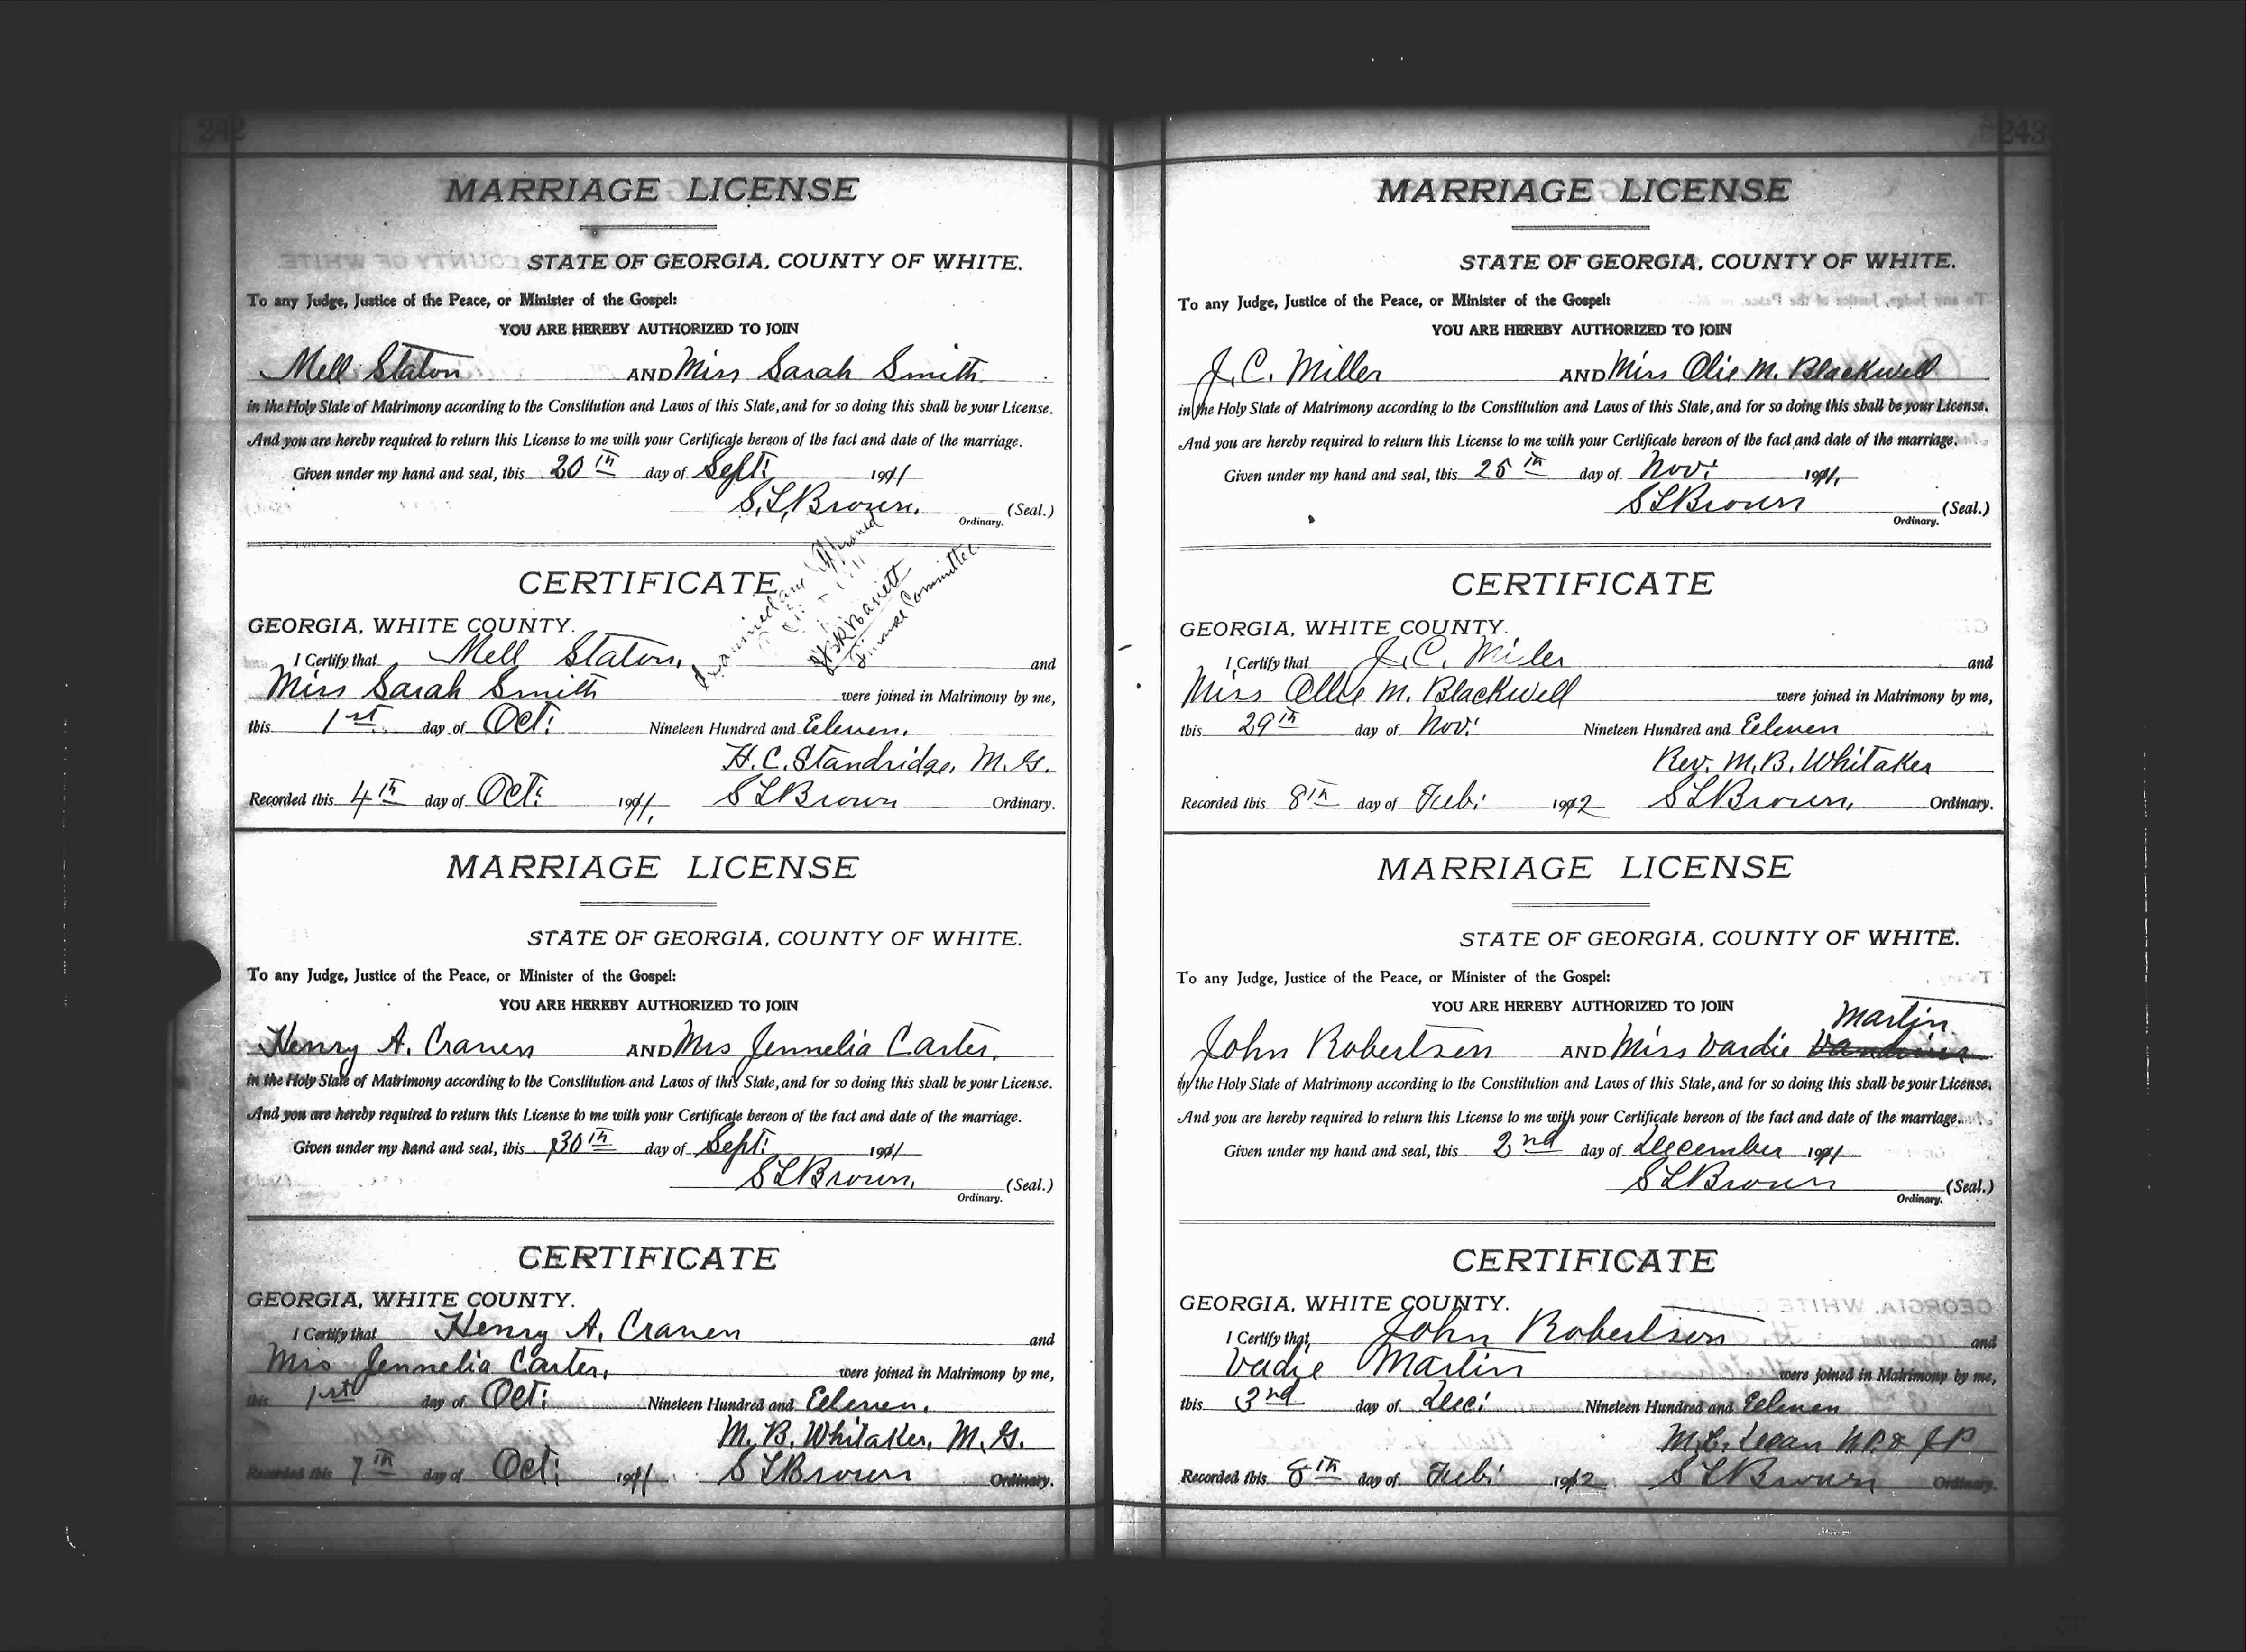 242
MARRIAGE LICENSE
STATE OF GEORGIA, COUNTY OF WHITE.
To any Judge, Justice of the Peace, or Minister of the Gospel:
YOU ARE HEREBY AUTHORIZED TO JOIN
Mell Staton AND Miss Sarah Smith
in the Holy State of Matrimony according to the Constitution and Laws of this State, and for so doing this shall be your License.
And you are hereby required to return this License to me with your Certificate hereon of the fact and date of the marriage.
Given under my hand and seal, this 20th day of Sept: 1911
S. L. Brown. (Seal.)
Ordinary.
Approved
Finance Committee
CERTIFICATE
GEORGIA, WHITE COUNTY.
I Certify that Mell Staton, and
Miss Sarah Smith were joined in Matrimony by me,
this 1st day of Oct: Nineteen Hundred and Eeleven.
H. C. Standridge, M. G.
Recorded this 4th day of Oct: 1911. S L Brown Ordinary.
MARRIAGE LICENSE
STATE OF GEORGIA, COUNTY OF WHITE.
To any Judge, Justice of the Peace, or Minister of the Gospel:
YOU ARE HEREBY AUTHORIZED TO JOIN
Henry A. Craven AND Mrs Jennelia Carter.
in the Holy State of Matrimony according to the Constitution and Laws of this State, and for so doing this shall be your License.
And you are hereby required to return this License to me with your Certificate hereon of the fact and date of the marriage.
Given under my hand and seal, this 30th day of Sept: 1911
S L Brown. (Seal.)
Ordinary.
CERTIFICATE
GEORGIA, WHITE COUNTY.
I Certify that Henry A. Craven and
Mrs Jennelia Carter, were joined in Matrimony by me,
this 1st day of Oct: Nineteen Hundred and Eeleven.
M. B. Whitaker, M. G.
Recorded this 7th day of Oct: 1911 S L Brown Ordinary.
243
MARRIAGE LICENSE
STATE OF GEORGIA, COUNTY OF WHITE.
To any Judge, Justice of the Peace, or Minister of the Gospel:
YOU ARE HEREBY AUTHORIZED TO JOIN
J. C. Miller AND Miss Olie M. Blackwell
in the Holy State of Matrimony according to the Constitution and Laws of this State, and for so doing this shall be your License.
And you are hereby required to return this License to me with your Certificate hereon of the fact and date of the marriage.
Given under my hand and seal, this 25th day of Nov: 1911.
S L Brown (Seal.)
Ordinary.
CERTIFICATE
GEORGIA, WHITE COUNTY.
I Certify that J. C. Miler and
Miss Ollie M. Blackwell were joined in Matrimony by me,
this 29th day of Nov: Nineteen Hundred and Eeleven
Rev. M. B. Whitaker
Recorded this 8th day of Feb: 1912 S L Brown. Ordinary.
MARRIAGE LICENSE
STATE OF GEORGIA, COUNTY OF WHITE.
To any Judge, Justice of the Peace, or Minister of the Gospel:
YOU ARE HEREBY AUTHORIZED TO JOIN
Martin
John Robertson AND Miss Vardie
in the Holy State of Matrimony according to the Constitution and Laws of this State, and for so doing this shall be your License.
And you are hereby required to return this License to me with your Certificate hereon of the fact and date of the marriage.
Given under my hand and seal, this 2nd day of December 1911
S L Brown (Seal.)
Ordinary.
CERTIFICATE
GEORGIA, WHITE COUNTY.
I Certify that John Robertson and
Vadie Martin were joined in Matrimony by me,
this 3nd day of Dec: Nineteen Hundred and Eeleven
N.P. & J P
Recorded this 8th day of Feb: 1912 S L Brown Ordinary.